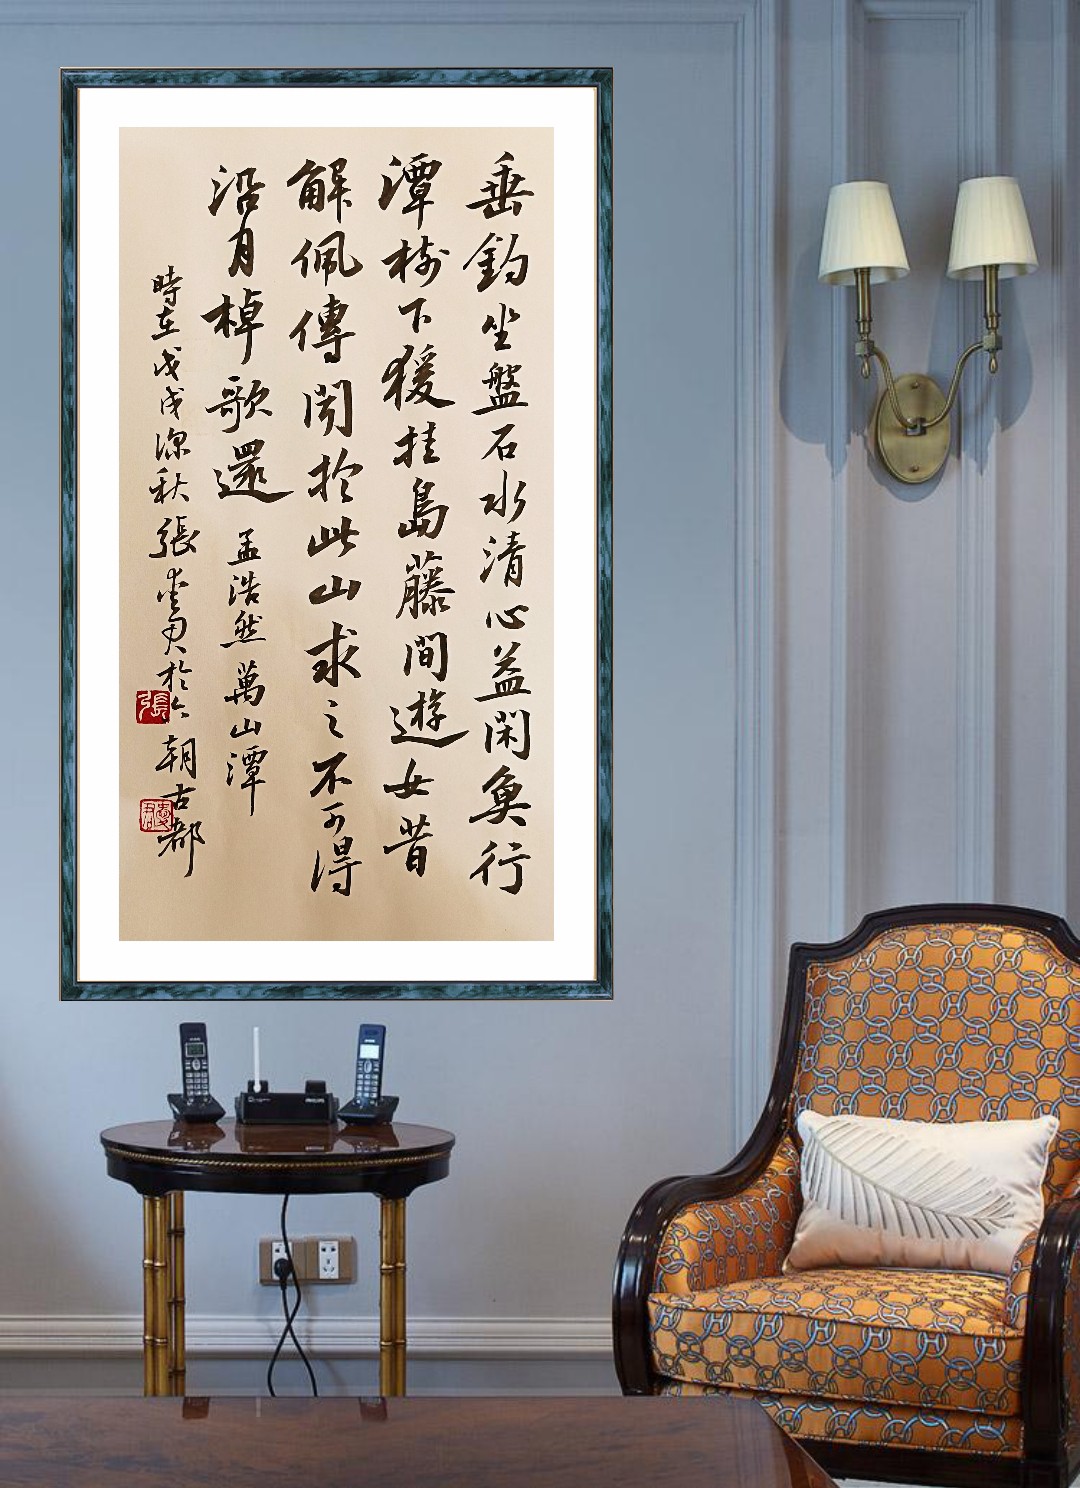 垂釣坐盤石水清心益閑魚行
潭樹下猨挂島藤間遊女昔
解佩傳聞於此山求之不可得
沿月棹歌還 孟浩然萬山潭
時在戊戌深秋張書君於六朝古都
張
PHILIPS